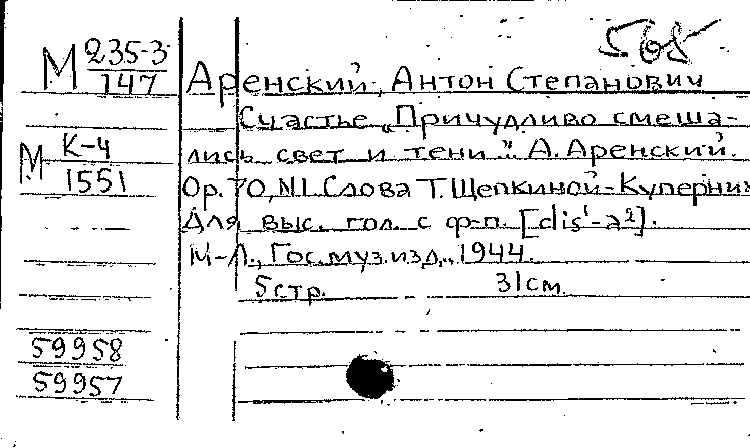 568
М 235-3
147
Аренский, Антон Степанович
Счастье „Причудливо смеша-
М К-4
1551
лись свет и тени". А. Аренский.
Ор. 70, N1. Слова Т. Щепкиной-Куперник
Для выс. гол. с ф-п. [dis¹-a²].
М-Л., Гос. муз. изд., 1944.
5 стр. 31 см.
59958
59957